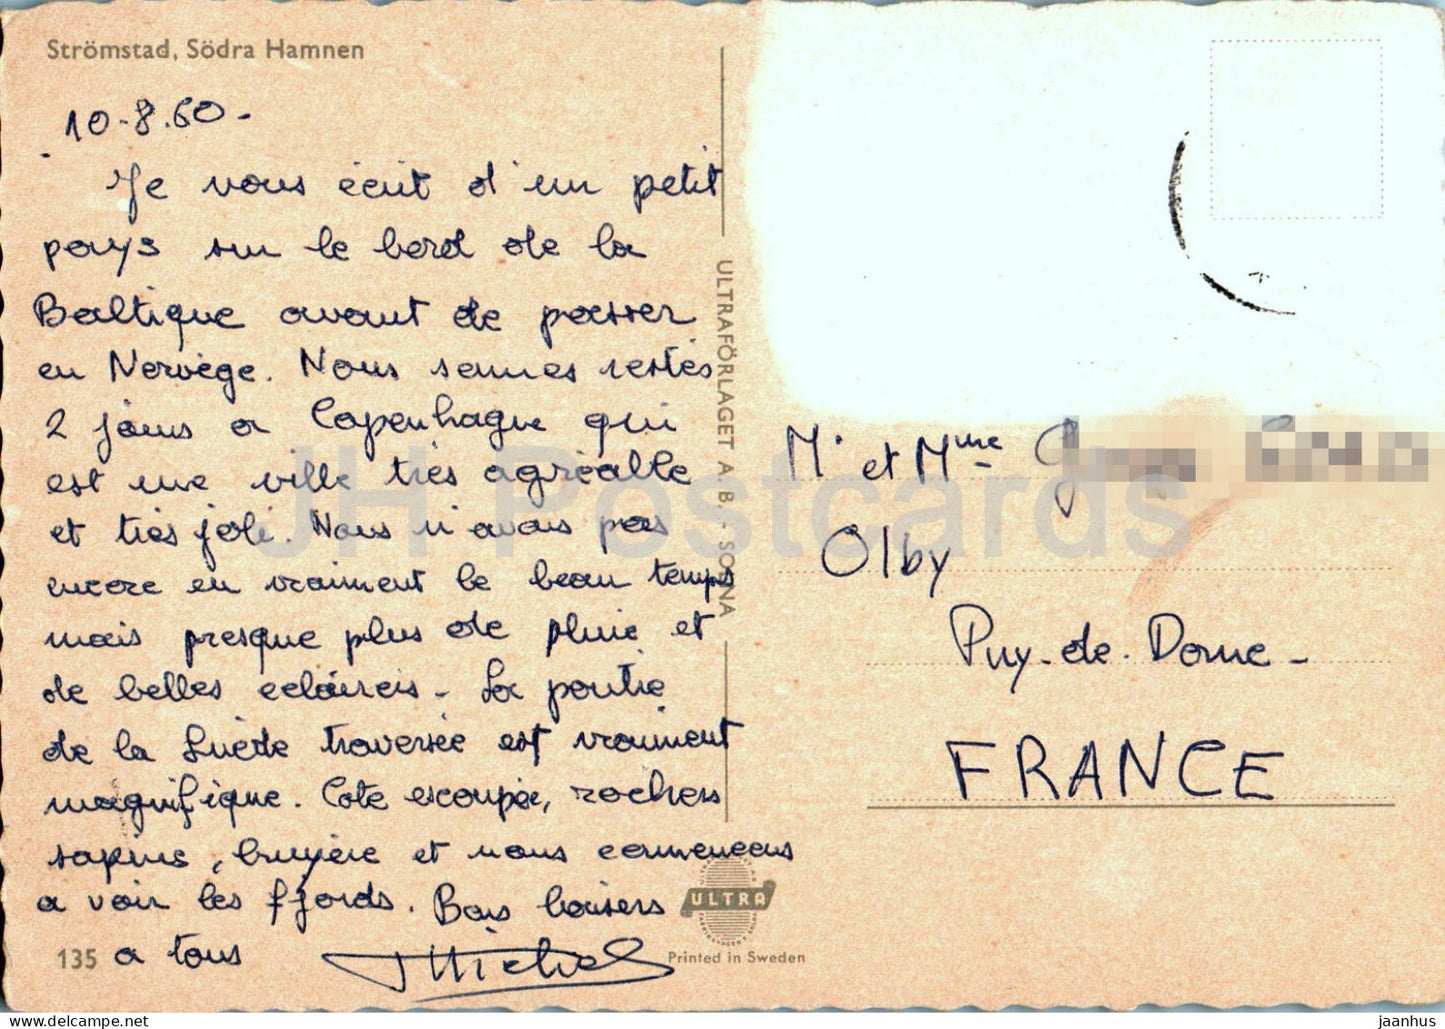 Strömstad, Södra Hamnen
10-8.60-
Je vous écrit d'un petit
pays sur le bord de la
Baltique avant de passer
en Norvège. Nous sommes restés
2 jours a Copenhague qui
est une ville très agréable
et très joli. Nous n'avons pas
encore eu vraiment le beau temps
mais presque plus de pluie et
de belles eclaircis - La partie
de la Suède traversée est vraiment
magnifique. Cote escoupée, rochers
sapins, bruyère et nous commencons
a voir les fjords. Bons baisers
a tous Michel
135
ULTRAFÖRLAGET A. B. - SOLNA
ULTRA
Printed in Sweden
Mr et Mme
Olby
Puy-de-Dome-
FRANCE
JH Postcards
jaanhus | ma-shops.com